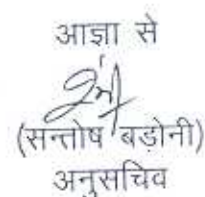 आज्ञा से
(सन्तोष बड़ोनी)
अनुसचिव